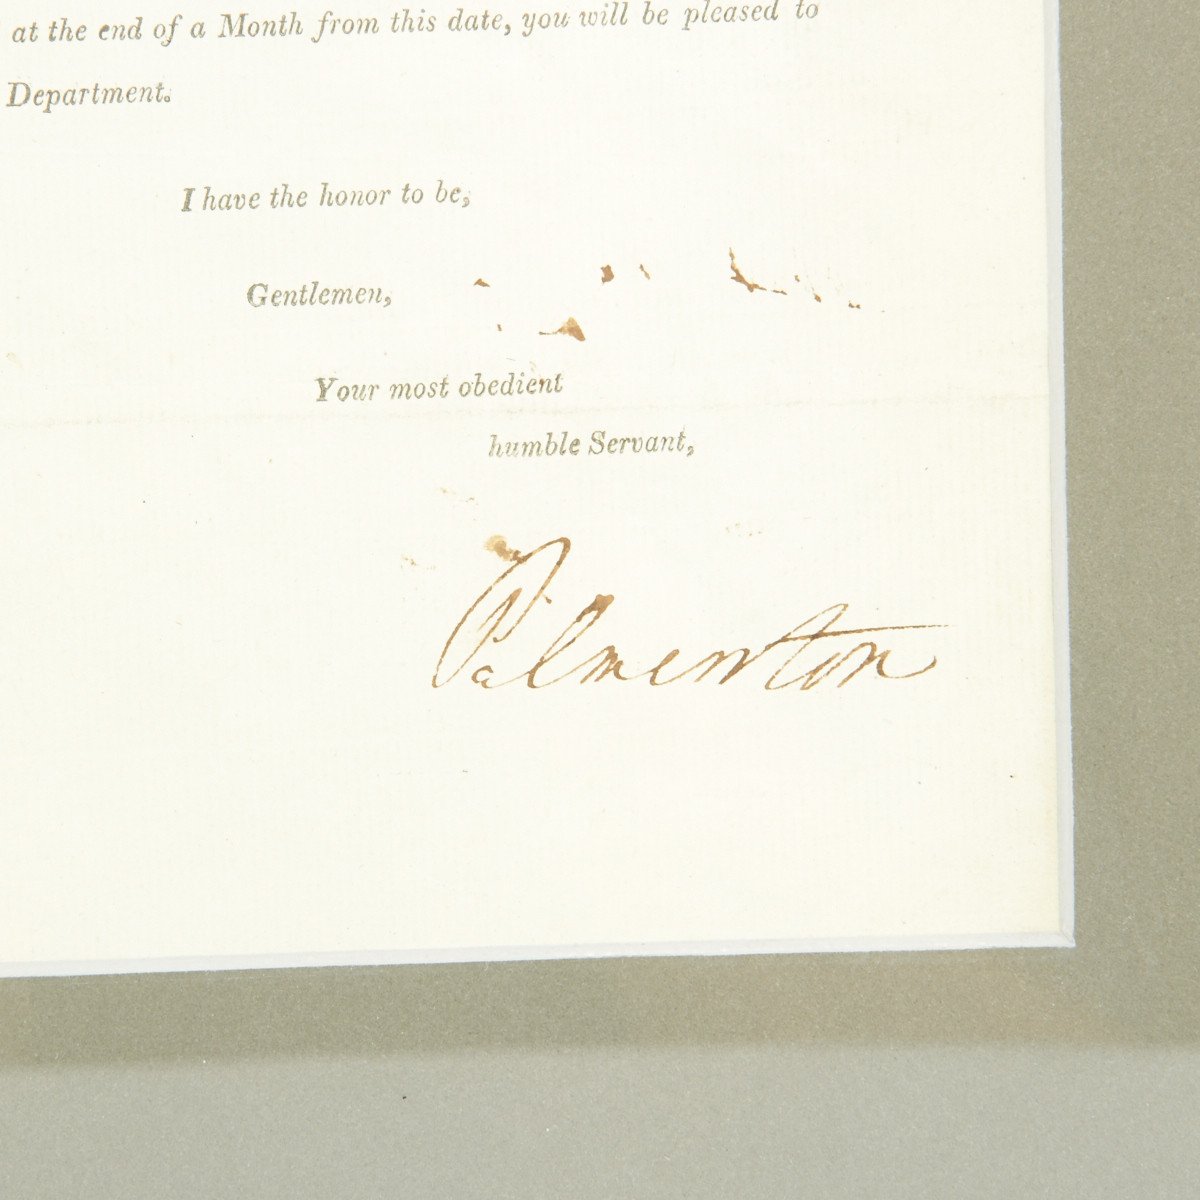 at the end of a Month from this date, you will be pleased to
Department.
I have the honor to be,
Gentlemen,
Your most obedient
humble Servant,
Palmerston